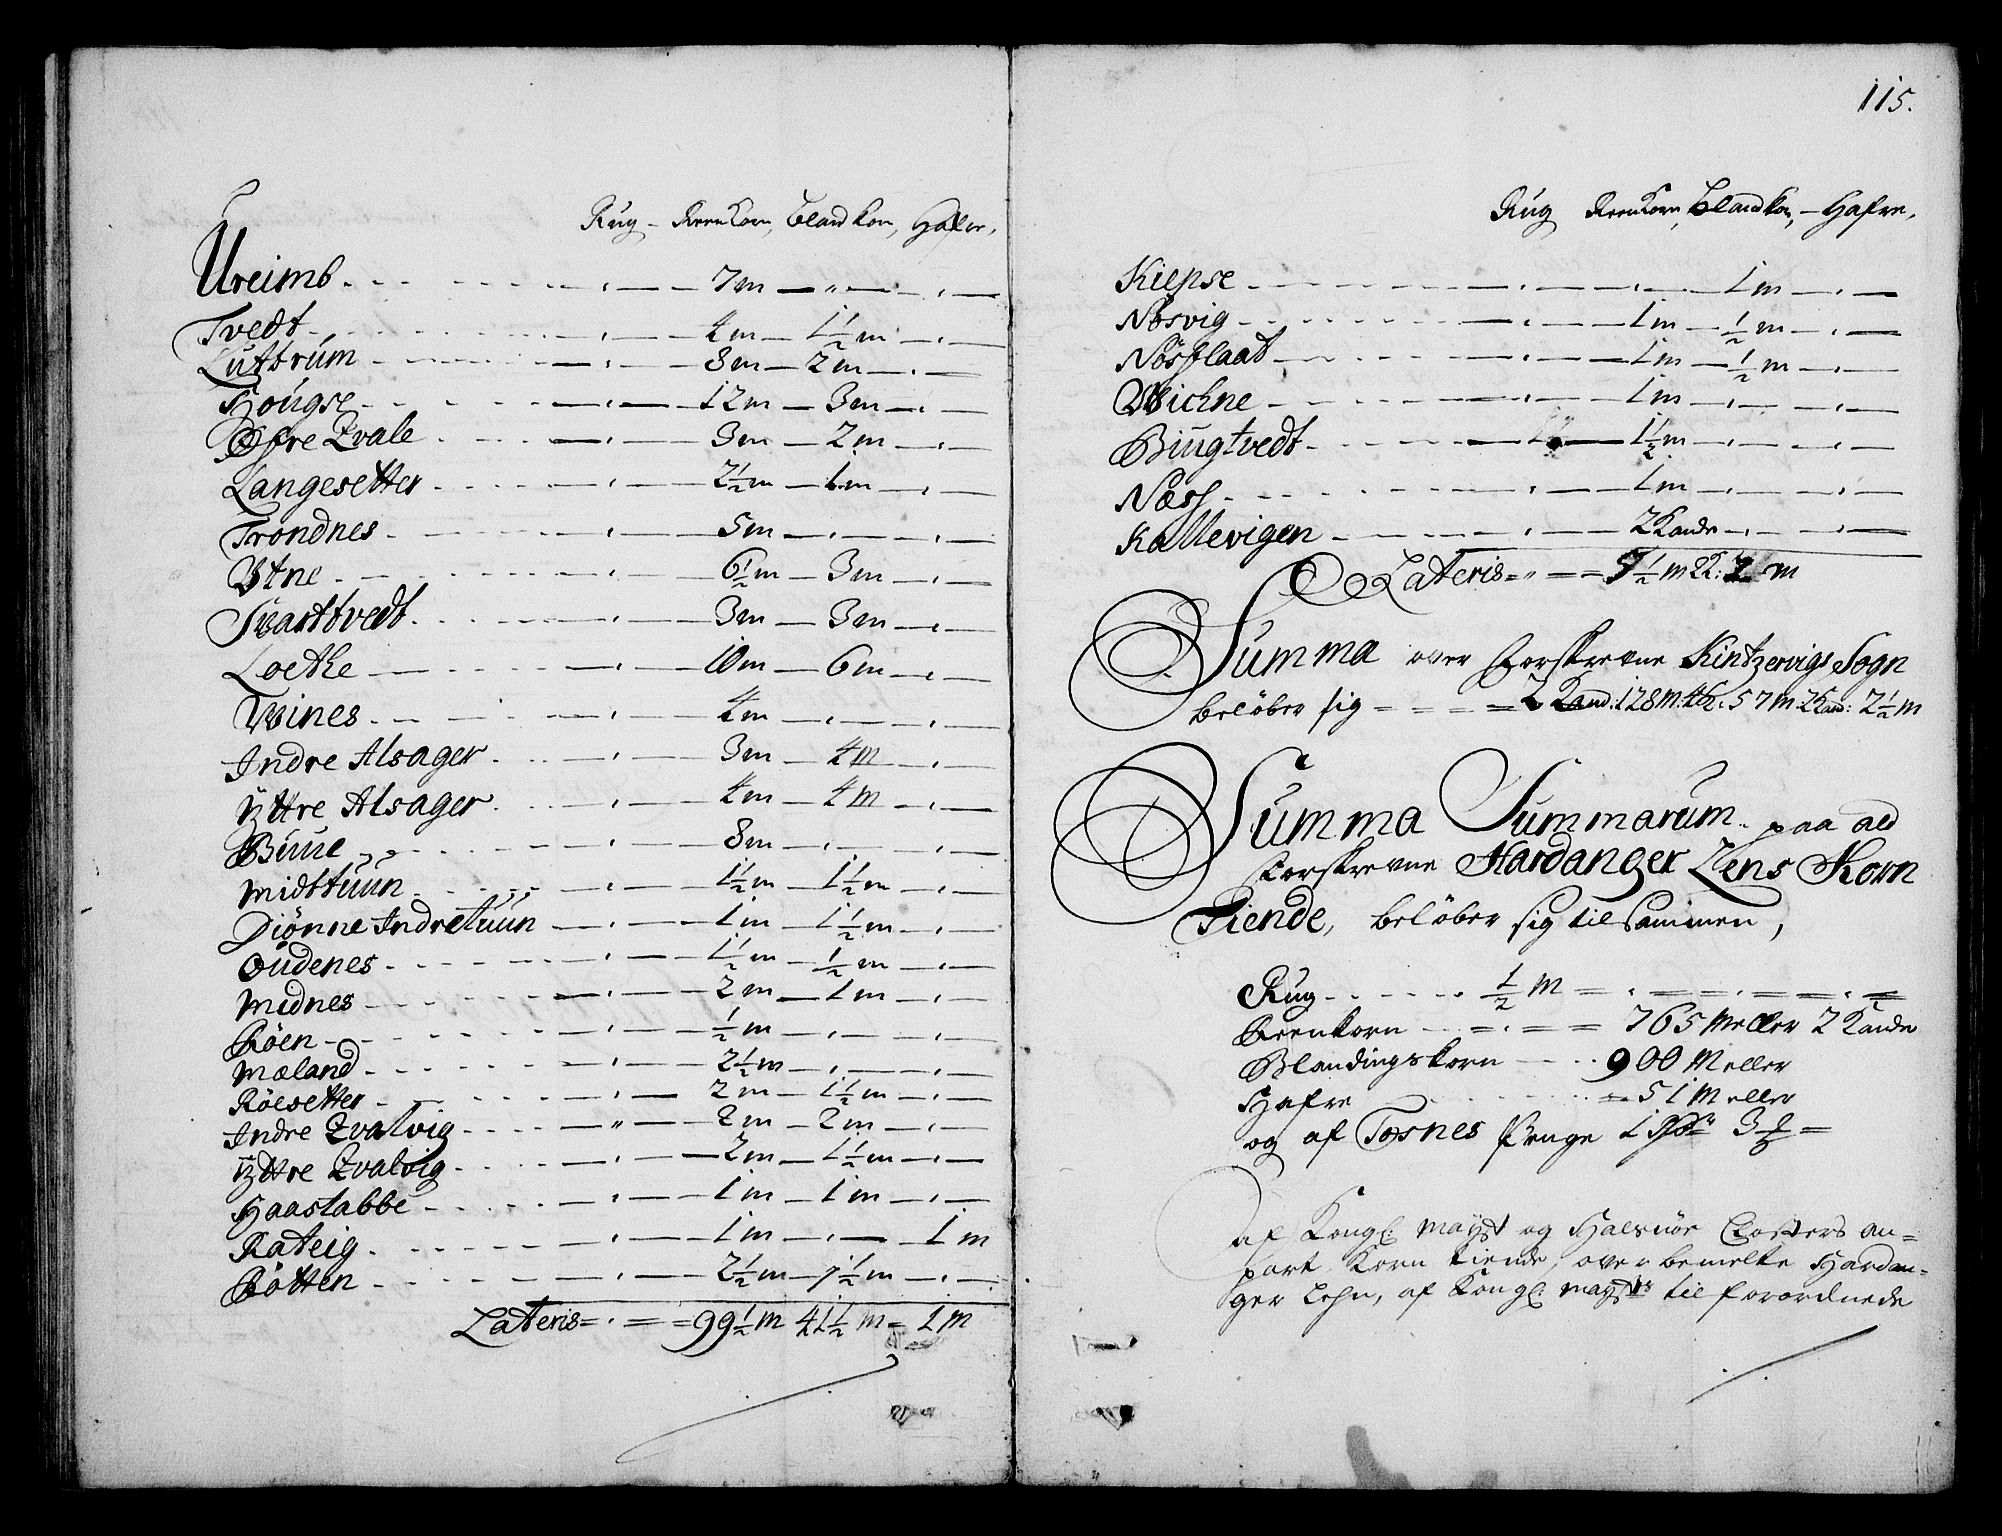 Rug - Reenkorn, Blandkorn, Hafre,
Ureimb - - - 7 m
Tvedt - - - 4 m - 1 1/2 m
Luttrum - - - 8 m - 2 m
Hougse - - - 12 m - 3 m
Øfre Qvale - - - 3 m - 2 m
Langesetter - - - 2 1/2 m - 1 m
Trondnes - - - 5 m
Utne - - - 6 1/2 m - 3 m
Svarttvedt - - - 3 m - 3 m
Loethe - - - 10 m - 6 m
Wines - - - 4 m
Indre Alsager - - - 3 m - 4 m
Ÿttre Alsager - - - 4 m - 4 m
Büüe - - - 8 m
Midttuun - - - 1 1/2 m - 1 1/2 m
Diønne Indretuun - - - 1 m - 1 1/2 m
Oudenes - - - 1 1/2 m - 1/2 m
Midnes - - - 2 m - 1 m
Röen - - - 1/2 m
Mæland - - - 2 1/2 m
Röesetter - - - 2 m - 1 1/2 m
Indre Qvalvig - - - 2 m - 2 m
Ÿttre Qvalvig - - - 2 m - 1 1/2 m
Haastabbe - - - 1 m - 1 m
Rateig - - - 1 m - 1 m
Rötten - - - 2 1/2 m - 1 1/2 m
Lateris = 99 1/2 m 41 1/2 m = 1 m
115.
Rug Reenkorn, Blandkorn, - Hafre,
Kiepse - - - 1 m
Nösvig - - - 1 m - 1/2 m
Nösflaat - - - 1 m - 1/2 m
Wichne - - - 1 m
Biugtvedt - - - 1 1/2 m
Næss - - - 1 m
Kallevigen - - - 2 Kande
Lateris = 5 1/2 m 2 K: 2 m
Summa over forskrevne Kintzervigs Sogn
beløber sig - - - 2 Kand: 128 m: 57 m 2 Kand: 2 1/2 m
Summa Summarum paa ald
forskrevne Hardanger Lens Korn
Tiende, beløber sig tilsammen,
Rug - - - 1/2 m
Reenkorn - - - 765 Meller 2 Kande
Blandingskorn - - - 900 Meller
Hafre - - - 51 Meller
og af Tosnes Penge 1
af Kongl: mayst og Halsnöe Closters an=
part Korn tiende, over bemelte Hardan=
ger Lehn, af Kongl: mayts til forordnede